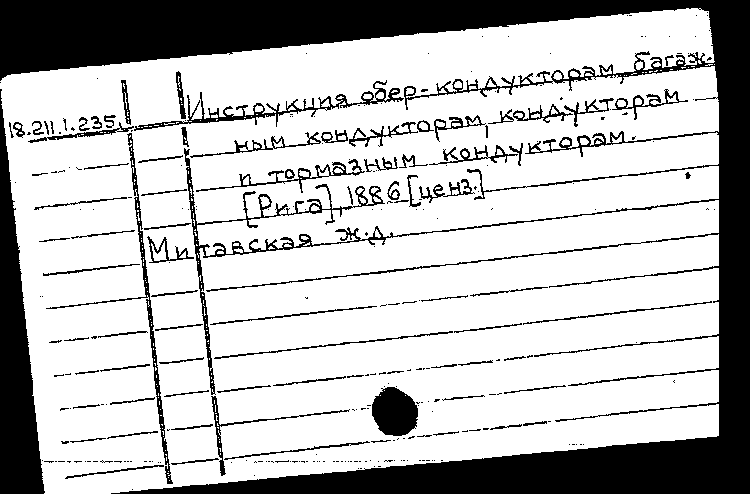 18.211.1.235.
Инструкция обер-кондукторам, багаж-
ным кондукторам, кондукторам
и тормазным кондукторам.
[Рига], 1886 [ценз.]
Митавская ж.д.